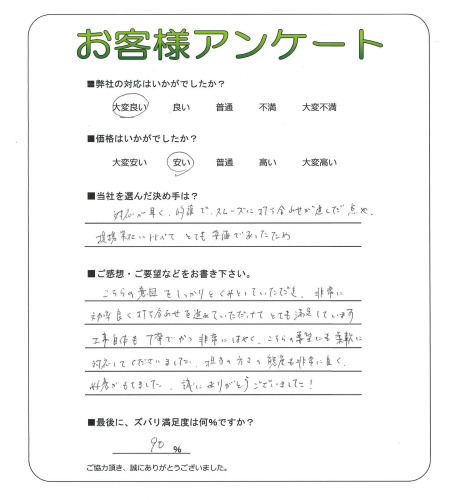 お客様アンケート
■弊社の対応はいかがでしたか？
大変良い 良い 普通 不満 大変不満
■価格はいかがでしたか？
大変安い 安い 普通 高い 大変高い
■当社を選んだ決め手は？
対応が早く、的確で、スムーズに打ち合わせが進んだ点や、
提携業社に比べて とても安価であったため
■ご感想・ご要望などをお書き下さい。
こちらの意図をしっかりとくみとっていただき、非常に
効率良く打ち合わせを進めていただけてとても満足しています
工事自体も丁寧でかつ非常にはやく、こちらの要望にも柔軟に
対応してくださいました。担当の方々の態度も非常に良く、
好感がもてました。誠にありがとうございました！
■最後に、ズバリ満足度は何％ですか？
90 ％
ご協力頂き、誠にありがとうございました。